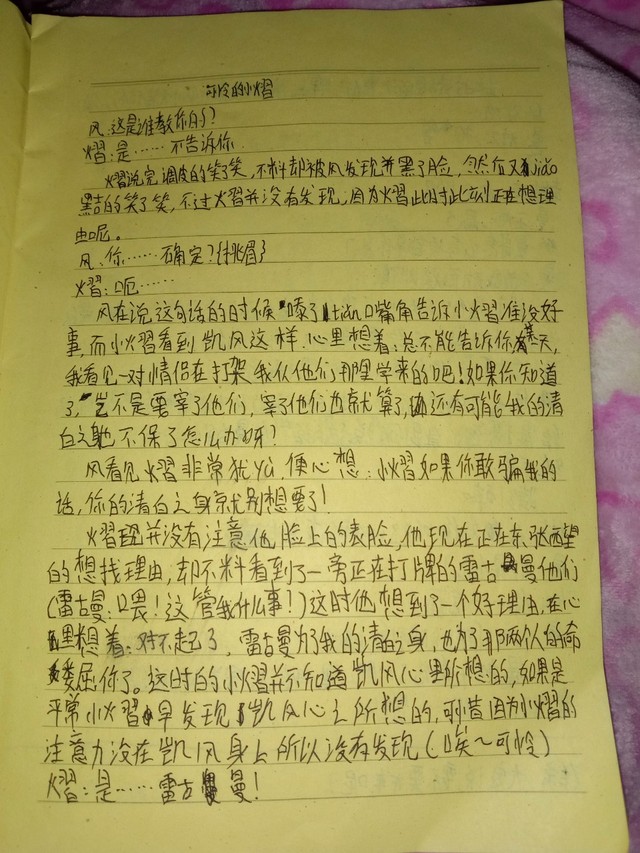 可怜的小熠
风：这是谁教你的？
熠：是……不告诉你
熠说完调皮的笑了笑，不料却被风发现并黑了脸，然后又有jiāo
黠的笑了笑，不过火熠并没有发现，因为火熠此时此刻正在想理
由呢。
风：你……确定？{挑眉}
熠：呃……
风在说这句话的时候嗪了tiǎn嘴角告诉小火熠准没好
事，而小火熠看到凯风这样，心里想着：总不能告诉你有天，
我看见一对情侣在打架我从他们那里学来的吧！如果你知道
了，岂不是要宰了他们，宰了他们也就算了，还有可能我的清
白之躯不保了怎么办呀？
风看见火熠非常犹yù，便心想：小火熠如果你敢骗我的
话，你的清白之身就别想要了！
火熠现并没有注意他脸上的表脸，他现在正在东张西望
的想找理由，却不料看到了一旁正在打牌的雷古曼他们
（雷古曼：喂！这管我什么事！）这时他想到了一个好理由，在心
里想着：对不起了，雷古曼为了我的清白之身，也为了那两个人的命
委屈你了。这时的小火熠并不知道凯风心里所想的，如果是
平常小火熠早发现凯风心之所想的，可惜因为小火熠的
注意力没在凯风身上所以没有发现（唉～可怜）
火熠：是……雷古曼！